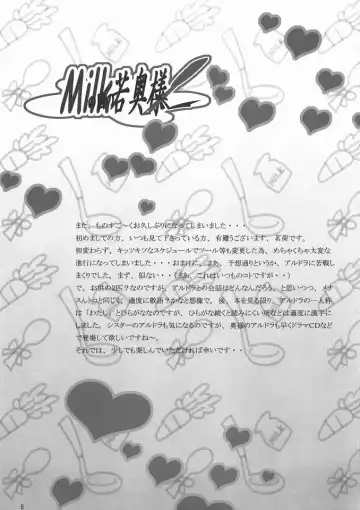 Milk若奥様
また、ものすご〜くお久しぶりになってしまいました・・・
初めましての方、いつも見て下さっている方、有難うございます、茗荷です。
相変わらず、キッツキツなスケジュールでツール等も変更した為、めちゃくちゃ大変な
進行になってしまいました・・・おまけに、まあ、予想通りというか、アルドラに苦戦し
まくりでした。まず、似ない・・(まあ、これはいつものコトですが)
で、お供の2匹？なのですが、アルドラとの会話はどんなんだろう。と思いつつ、メナ
スんトコと同じな、適度に敬語？かなと想像で。後、本を見る限り、アルドラの一人称
は「わたし」とひらがななのですが、ひらがな続くと読みにくい所などは適度に漢字に
しました。シスターのアルドラも気になるのですが、奥様のアルドラも早くドラマCDなど
で登場して欲しいですね〜。
それでは、少しでも楽しんでいただければ幸いです・・
MILK
MILK
5